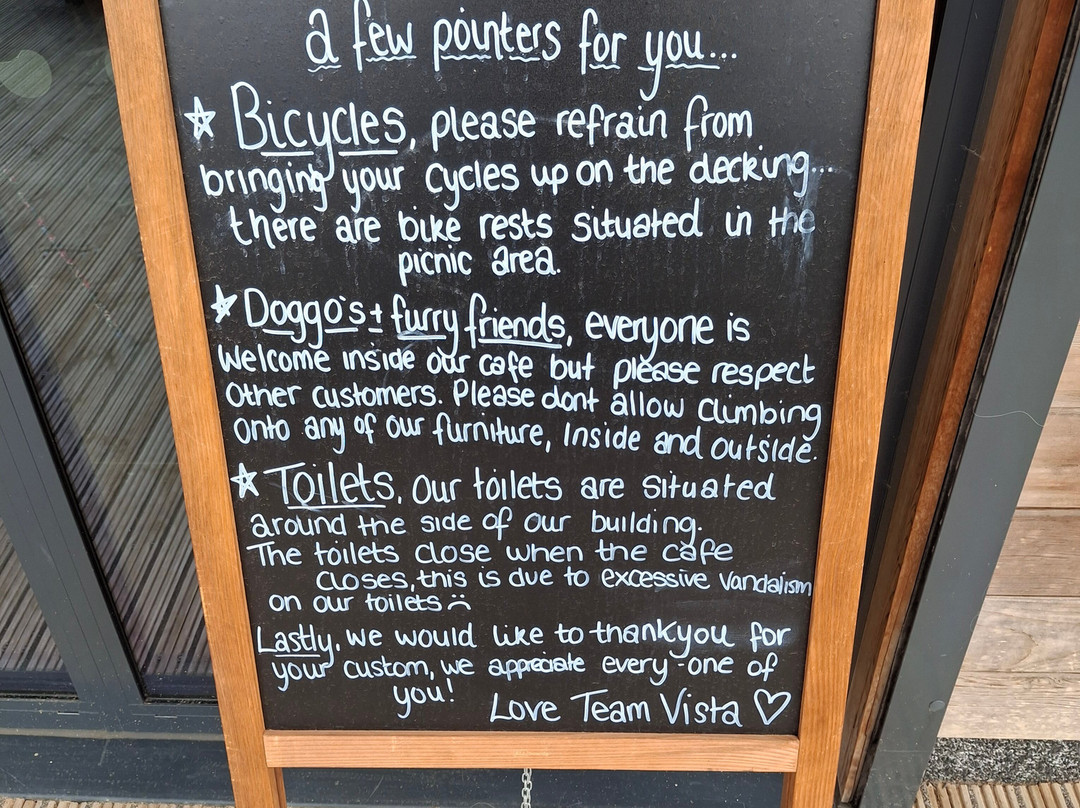 a few pointers for you...
☆ Bicycles, please refrain from
bringing your cycles up on the decking...
there are bike rests situated in the
picnic area.
☆ Doggo's + furry friends, everyone is
welcome inside our cafe but please respect
other customers. Please dont allow climbing
onto any of our furniture, Inside and outside.
☆ Toilets, our toilets are situated
around the side of our building.
The toilets close when the cafe
closes, this is due to excessive vandalism
on our toilets ☹
Lastly, we would like to thankyou for
your custom, we appreciate every-one of
you!
Love Team Vista ♡